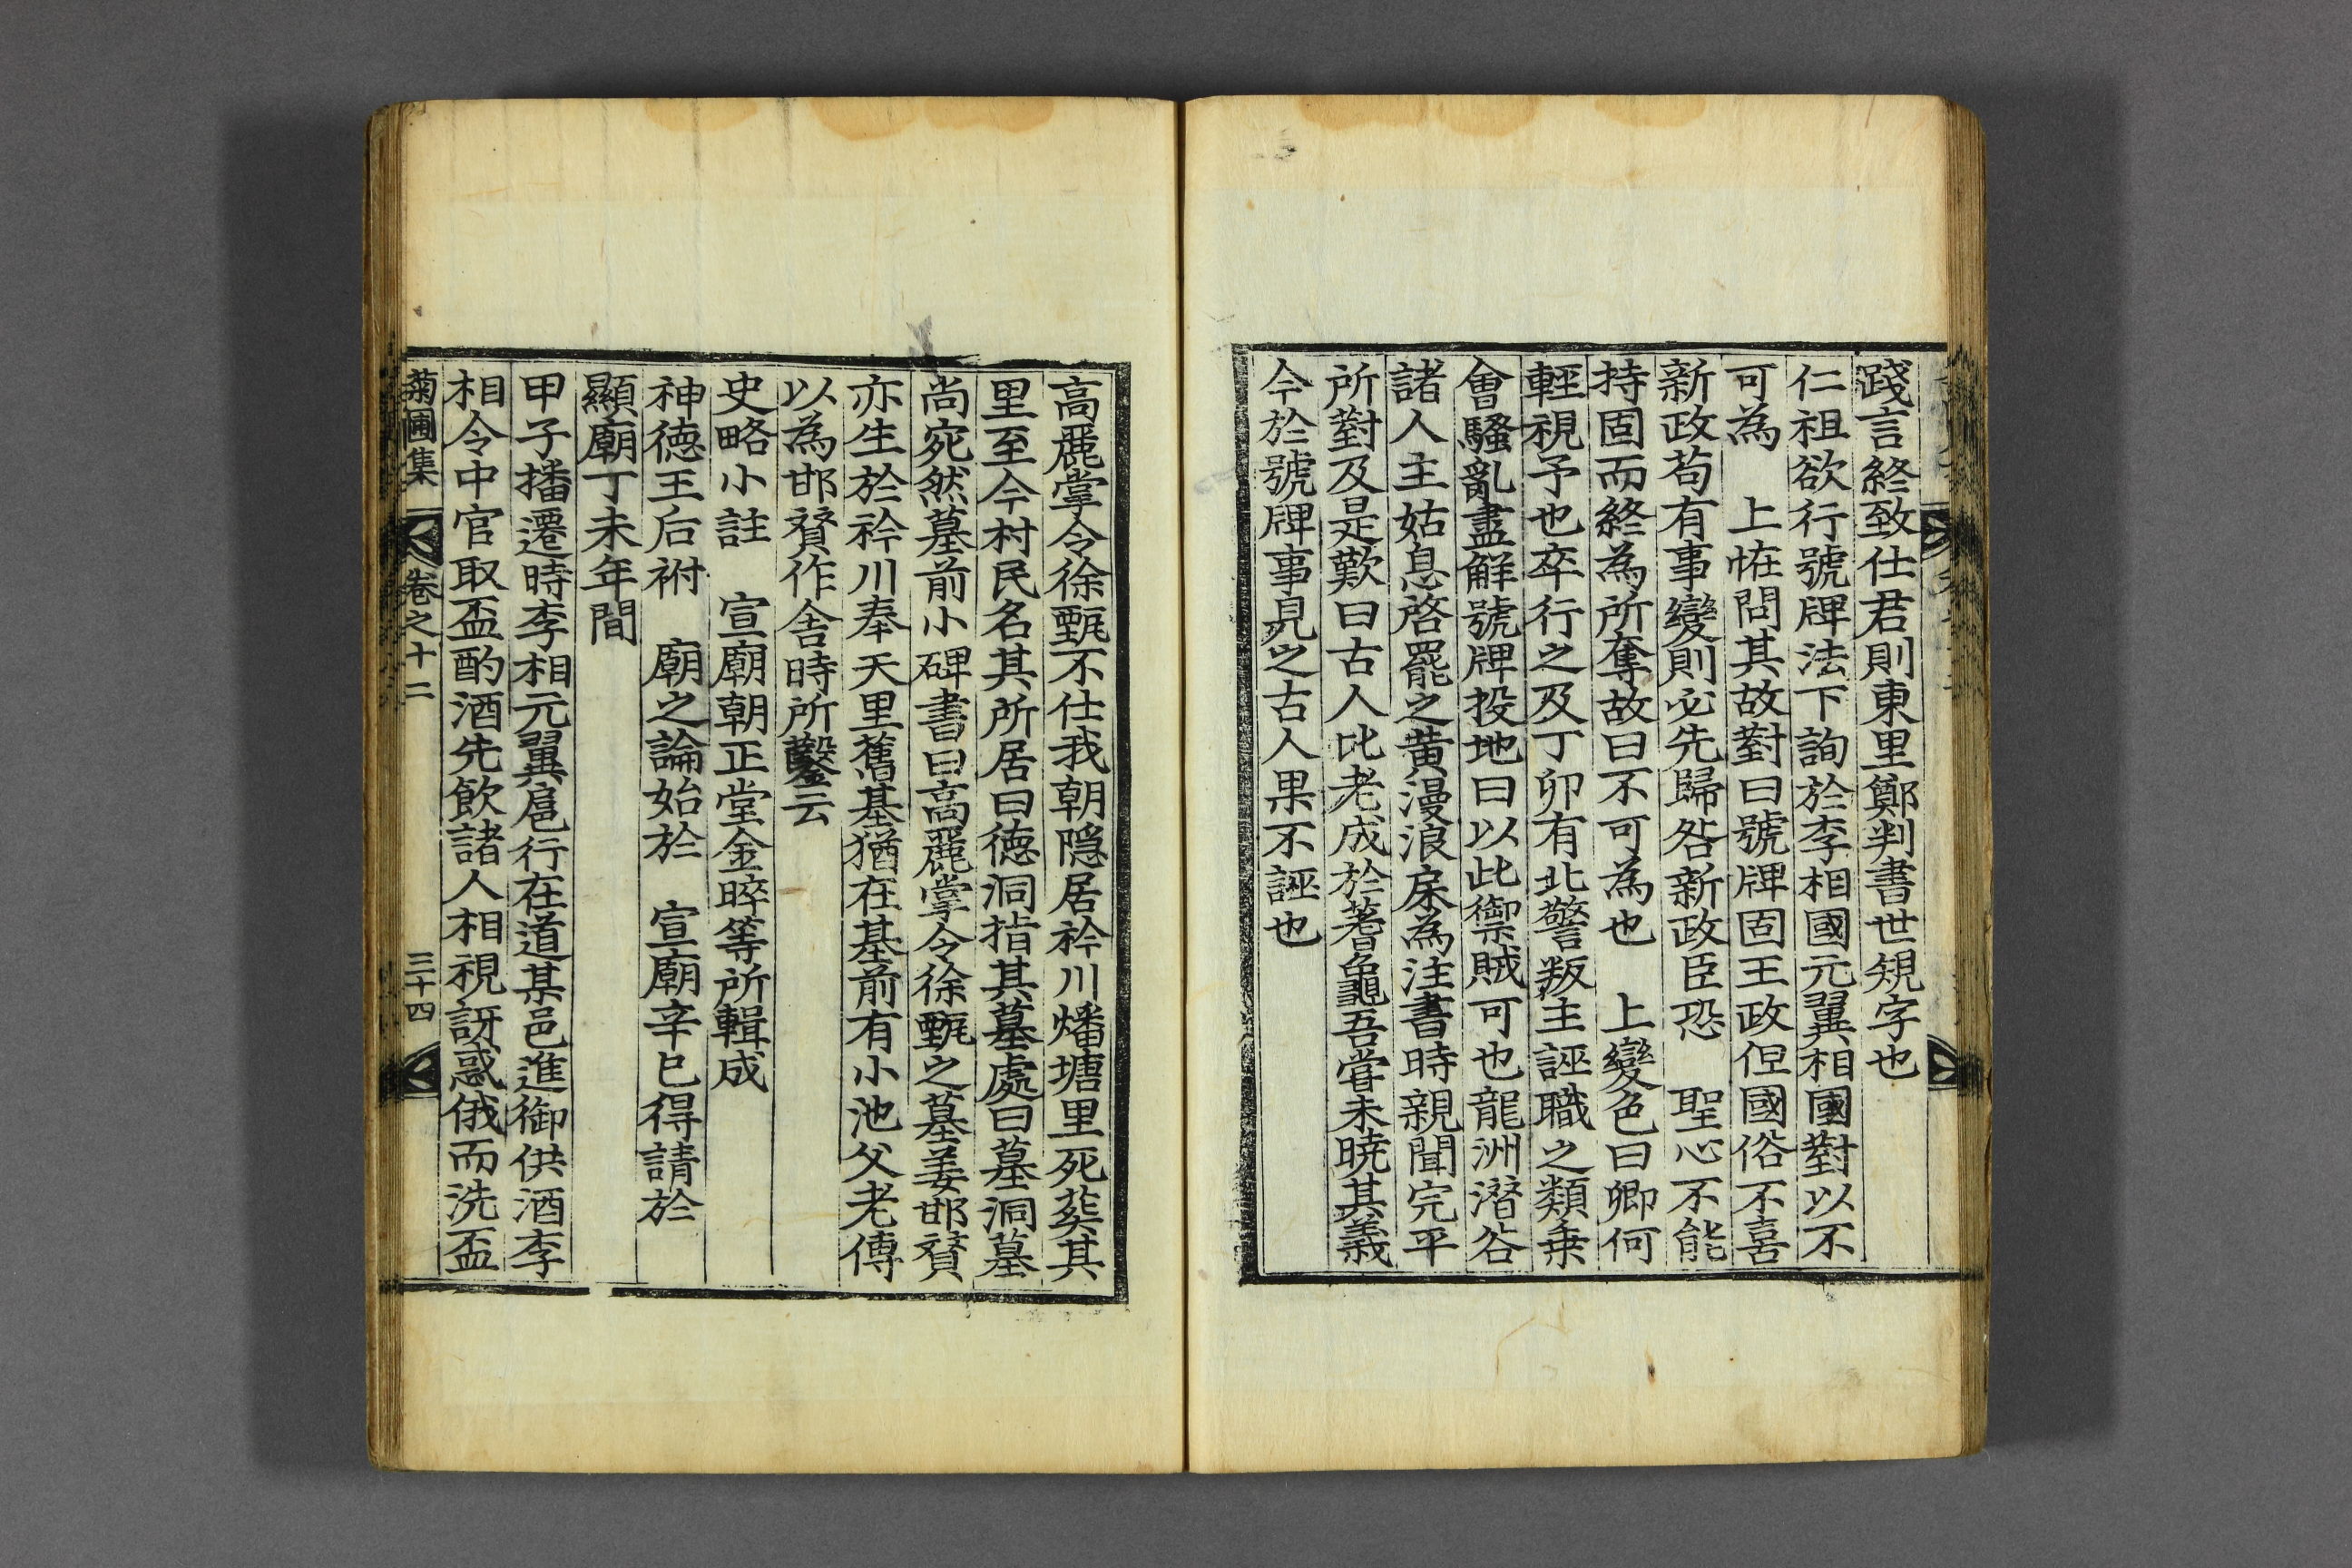 踐言終致仕君則東里鄭判書世規字也
仁祖欲行號牌法下詢於李相國元翼相國對以不
可為　上恠問其故對曰號牌固王政但國俗不喜
新政苟有事變則必先歸咎新政臣恐　聖心不能
持固而終為所奪故曰不可為也　上變色曰卿何
輕視予也卒行之及丁卯有北警叛主誣職之類乗
會騷亂盡觧號牌投地曰以此禦賊可也龍洲潛谷
諸人主姑息啓罷之黃漫浪㦿為注書時親聞完平
所對及是歎曰古人比老成於蓍龜吾甞未曉其義
今於號牌事見之古人果不誣也
高麗掌令徐甄不仕我朝隠居衿川燔塘里死葬其
里至今村民名其所居曰德洞指其墓處曰墓洞墓
尚宛然墓前小碑書曰高麗掌令徐甄之墓姜邯賛
亦生於衿川奉天里舊基猶在基前有小池父老傳
以為邯賛作舎時所鑿云
史略小註　宣廟朝正堂金晬等所輯成
神德王后祔　廟之論始於　宣廟辛巳得請於
顯廟丁未年間
甲子播遷時李相元翼扈行在道某邑進御供酒李
相令中官取盃酌酒先飲諸人相視訝惑俄而洗盃
菊圃集　卷之十二　三十四